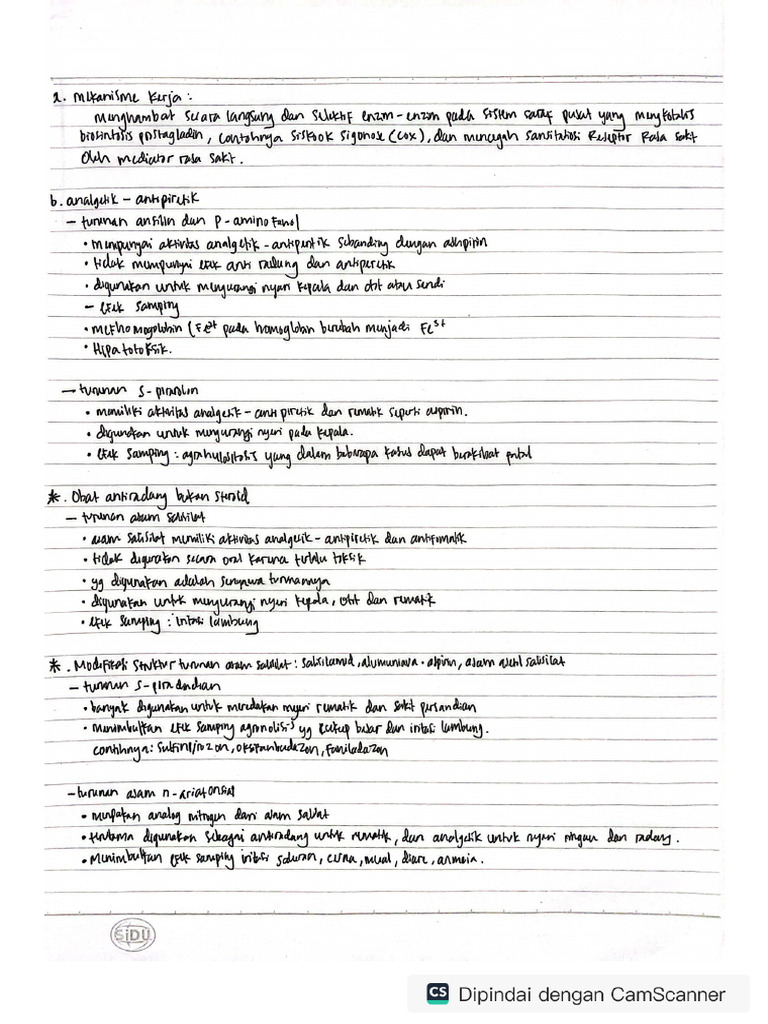 2. Mekanisme kerja :
Menghambat secara langsung dan selektif enzim-enzim pada sistem saraf pusat yang mengkatalis
biosintesis prostagladin, contohnya (cox), dan mencegah Reseptor Rasa sakit
Oleh mediator rasa sakit.
b. analgetik - antipiretik
- turunan anilin dan p-aminofenol
• mempunyai aktivitas analgetik - antipiretik sebanding dengan ashpirin
• tidak mempunyai efek anti radang dan antipiretik
• digunakan untuk mengurangi nyeri kepala dan otot atau sendi
- efek samping
• methomogolobin (Fe2+ pada homoglobin berubah menjadi Fe3+
• Hipatotoksik.
- turunan 5-pirazolon
• memiliki aktivitas analgetik - antipiretik dan rematik seperti aspirin.
• digunakan untuk mengurangi nyeri pada kepala.
• efek samping : agranulositosis yang dalam beberapa kasus dapat berakibat fatal
* . Obat antiradang bukan steroid
- turunan asam salisilat
• asam salisilat memiliki aktivitas analgetik - antipiretik dan antirematik
• tidak digunakan secara oral karena terlalu toksik
• yg digunakan adalah senyawa turunannya
• digunakan untuk mengurangi nyeri kepala, otot dan rematik
• efek samping : iritasi lambung
* . Modifikasi struktur turunan asam salisilat : salisilamid, aspirin, asam asetil salisilat
- turunan 5-
• banyak digunakan untuk meredakan nyeri rematik dan sakit persendian
• Menimbulkan efek samping yg cukup besar dan iritasi lambung.
contihnya :
- turunan asam n-
• merupakan analog nitrogen dari asam
• terutama digunakan sebagai antiradang untuk rematik, dan analgetik untuk nyeri ringan dan radang.
• Menimbulkan efek samping iritasi saluran, cerna, mual, diare, anmeia.
SiDU
CS Dipindai dengan CamScanner